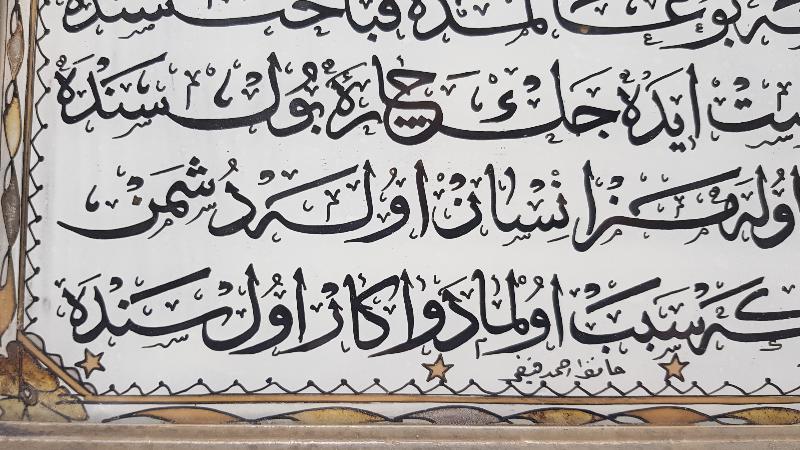 قباحت سنده
ایده جك چاره بول سنده
اوله مز انسان اوله دشمن
كه سبب اولما ذوا كار اول سنده
حافظ احمد